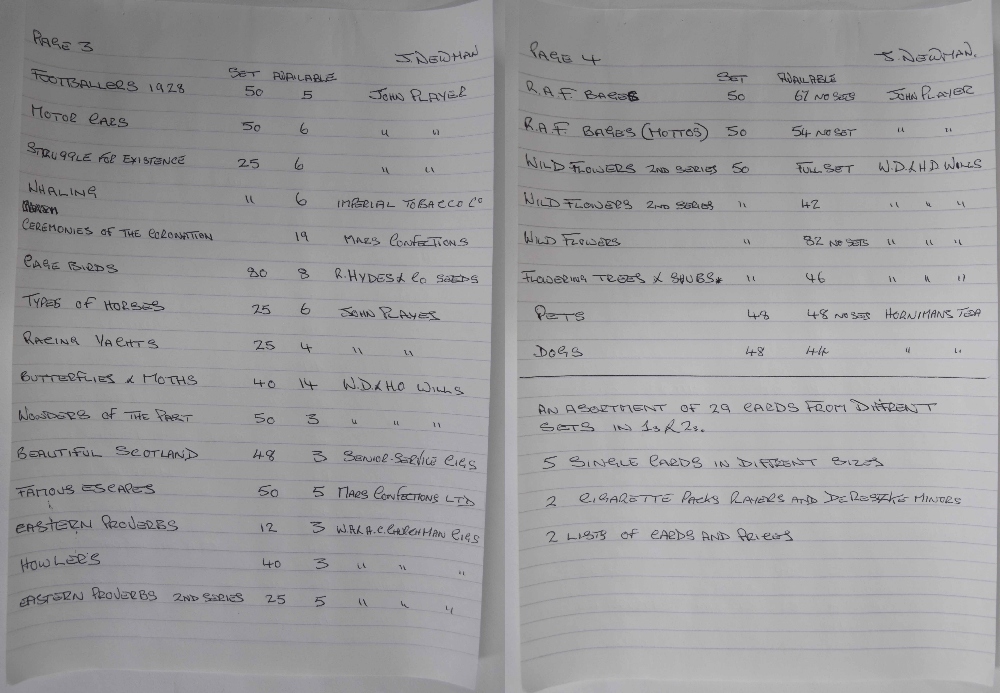 PAGE 3 J. NEWMAN
SET AVAILABLE
FOOTBALLERS 1928 50 5 JOHN PLAYER
MOTOR CARS 50 6 " "
STRUGGLE FOR EXISTENCE 25 6 " "
WHALING " 6 IMPERIAL TOBACCO Co
CEREMONIES OF THE CORONATION 19 MARS CONFECTIONS
CAGE BIRDS 80 8 R. HYDES & Co SEEDS
TYPES OF HORSES 25 6 JOHN PLAYES
RACING YACHTS 25 4 " "
BUTTERFLIES & MOTHS 40 14 W.D & H.O WILLS
WONDERS OF THE PART 50 3 " " "
BEAUTIFUL SCOTLAND 48 3 SENIOR-SERVICE CIGS
FAMOUS ESCAPES 50 5 MARS CONFECTIONS LTD
EASTERN PROVERBS 12 3 W.A & A.C. CHURCHMAN CIGS
HOWLER'S 40 3 " " "
EASTERN PROVERBS 2ND SERIES 25 5 " " "
PAGE 4 J. NEWMAN.
SET AVAILABLE
R.A.F. BASES 50 67 NO SETS JOHN PLAYER
R.A.F BASES (MOTTOS) 50 54 NO SET " "
WILD FLOWERS 2ND SERIES 50 FULL SET W.D. & H.D WILLS
WILD FLOWERS 2ND SERIES " 42 " " "
WILD FLOWERS " 82 NO SETS " " "
FLOWERING TREES & SHUBS* " 46 " " "
PETS 48 48 NO SES HORNIMANS TEA
DOGS 48 44 " "
AN ASORTMENT OF 29 CARDS FROM DIFFRENT
SETS IN 1s & 2s.
5 SINGLE CARDS IN DIFFRENT SIZES
2 CIGARETTE PACKS PLAYERS AND MINORS
2 LISTS OF CARDS AND PRICES